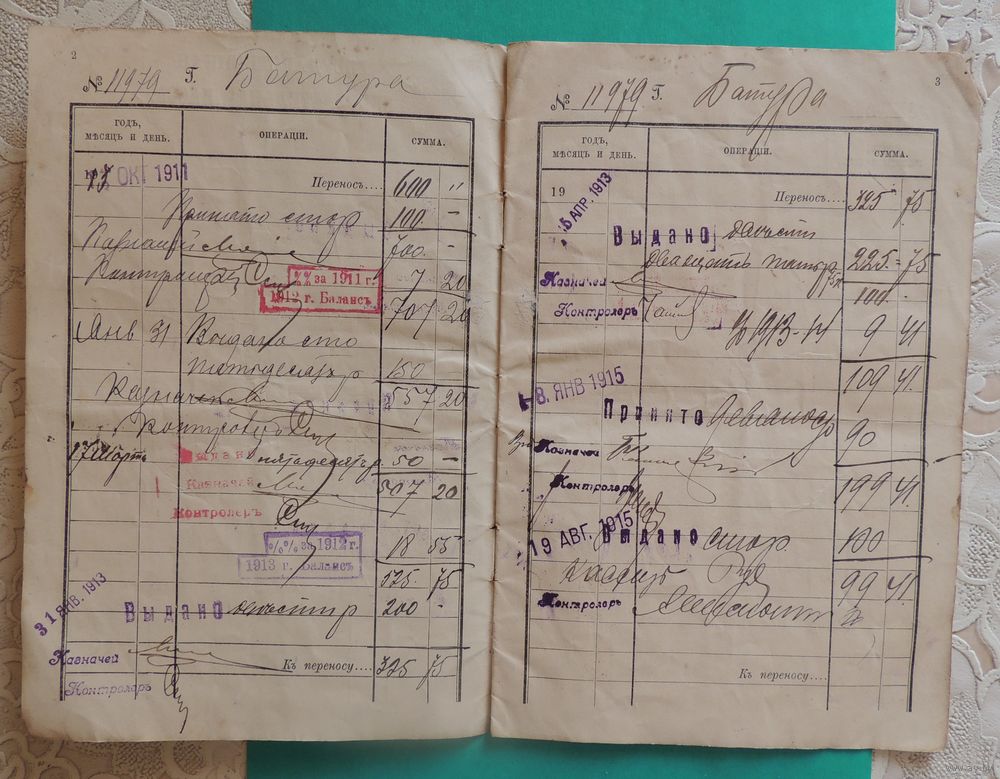 2
№ 11979 Г. Батура
ГОДЪ, МѢСЯЦЪ И ДЕНЬ.
ОПЕРАЦІИ.
СУММА.
13 ОКТ 1911
Переносъ.... 600 "
Принято сто р 100 -
Казначей 700. -
Контролеръ
%% за 1911 г. 7 20
1912 г. Балансъ 707 20
Янв 31 Выдано сто
пятьдесят р 150
Казначей 557 20
Контролеръ
17 Марта Выдано пятьдесят р. 50 -
Казначей 507 20
Контролеръ
%% за 1912 г. 18 55
1913 г. Балансъ
525 75
31 ЯНВ. 1913
Выдано двести р 200 -
Казначей
Къ переносу.... 325 75
Контролеръ
3
№ 11979 Г. Батура
ГОДЪ, МѢСЯЦЪ И ДЕНЬ.
ОПЕРАЦІИ.
СУММА.
19
Переносъ.... 325 75
5 АПР. 1913
Выдано двести
двадцать пять р 75 к 225 - 75
Казначей 100 -
Контролеръ
1913 9 41
109 41.
8. ЯНВ 1915
Принято девяносто р 90
Казначей
Контролеръ 199 41.
19 АВГ. 1915
Выдано сто р 100
Кассиръ 99 41.
Контролеръ
Къ переносу....